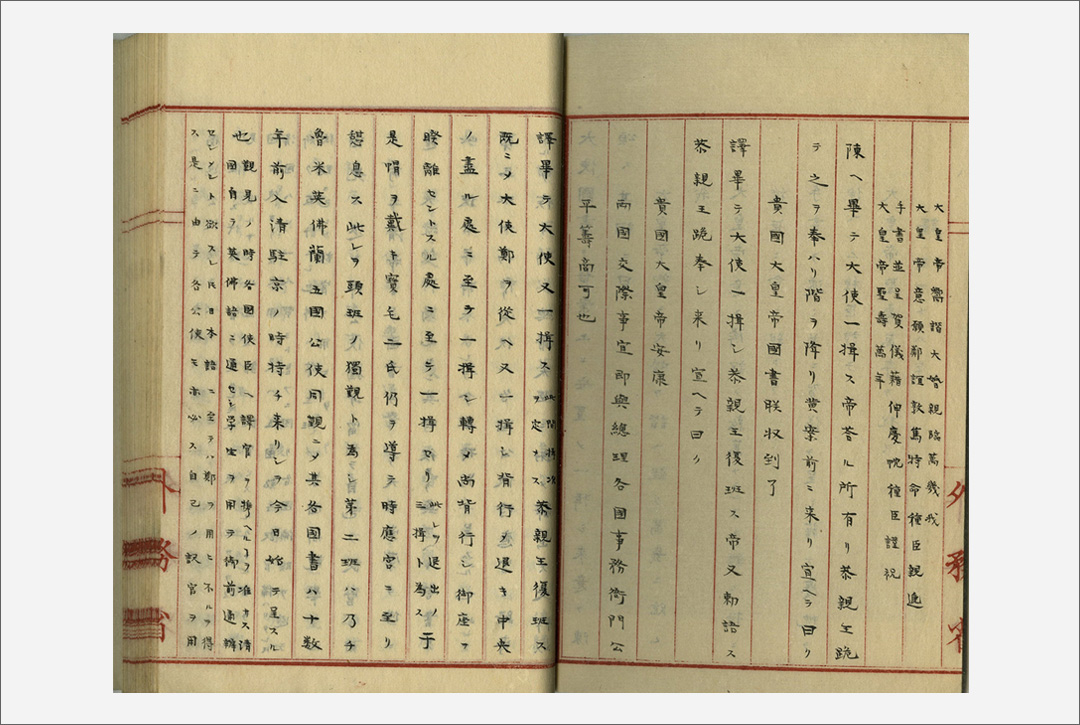 大皇帝嚮諧大婚親臨萬幾我
大皇帝意願鄰誼敦篤特命種臣親進
手書並呈賀儀藉伸慶悅種臣謹祝
大皇帝聖壽萬年
陳ヘ畢テ大使一揖ス帝荅ル所有リ恭親王跪
テ之ヲ奉ハリ階ヲ降リ黃案前ニ来リ宣ヘテ曰ク
貴國大皇帝國書朕収到了
譯畢テ大使一揖シ恭親王復班ス帝又勅語ス
恭親王跪奉シ来リ宣ヘテ曰ク
貴國大皇帝安康
両國交際事宜即與總理各國事務衙門公
平籌商可也
譯畢テ大使又一揖ス
ヲ定メス恭親王復班ス
既ニメ大使鄭ヲ從ヘ又一揖シ背行メ退キ中央
ノ盡ル處ニ至テ一揖シ轉メ尚背行シ御座ヲ
睽離セントスル處ニ至テ一揖セリ
此レヲ退出ノ
三揖ト為ス
于
是帽ヲ戴キ寶毛二氏仍ヲ導テ時應宮ニ至リ
憩息ス此レヲ頭班ノ獨覲ト為シ第二班ハ乃チ
魯米英佛蘭五國公使同覲ニメ其各國書ハ十数
年前入清駐京ノ時持チ来リシヲ今日始テ呈スル
也
覲見ノ時各國使臣ヘ譯官ヲ
ヲ准カス清
國自ラ英佛語ニ通セシ学生ヲ用テ御前通辨
欲スレ𪜈日本語ニ至テハ鄭ヲ用ヒ不ルヲ得
ス是ニ由テ各公使モ亦必ス自己ノ訳官ヲ用
外務省
外務省